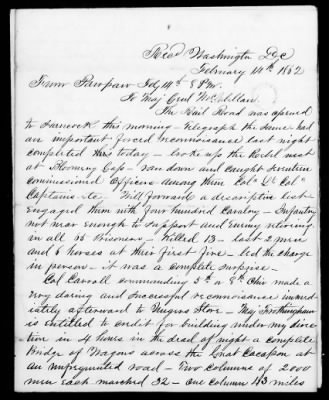 Recd Washington D.C
February 14th 1862
From Pawpaw Feby 14th 8 P.M.
To Maj Genl McClellan.
The Rail Road was opened
to Hancock this morning - Telegraph the same. had
an important forced reconnoisance last night
completed this today - broke up the Rebel nest
at Blooming Gap - ran down and caught seventeen
commissioned Officers among them Cols Lt Cols
Captains &c. Will forward a descriptive list -
Engaged them with four hundred Cavalry - Infantry
not near enough to support and Enemy retiring
in all 75 Prisoners - Killed 13 - lost 2 men
and 6 horses at their first fire - led the charge
in person - it was a complete surprise -
Col Carroll commanding 5th or 8th Ohio made a
very daring and successful reconnoisance immed-
iately afterward to Unger's Store - Maj Frothingham
is entitled to credit for building under my direc-
tion in 4 hours in the dead of night a complete
Bridge of Wagons across the Great Cacapon at
an unfrequented road - Two columns of 2000
men each marched 32 - one column 43 miles